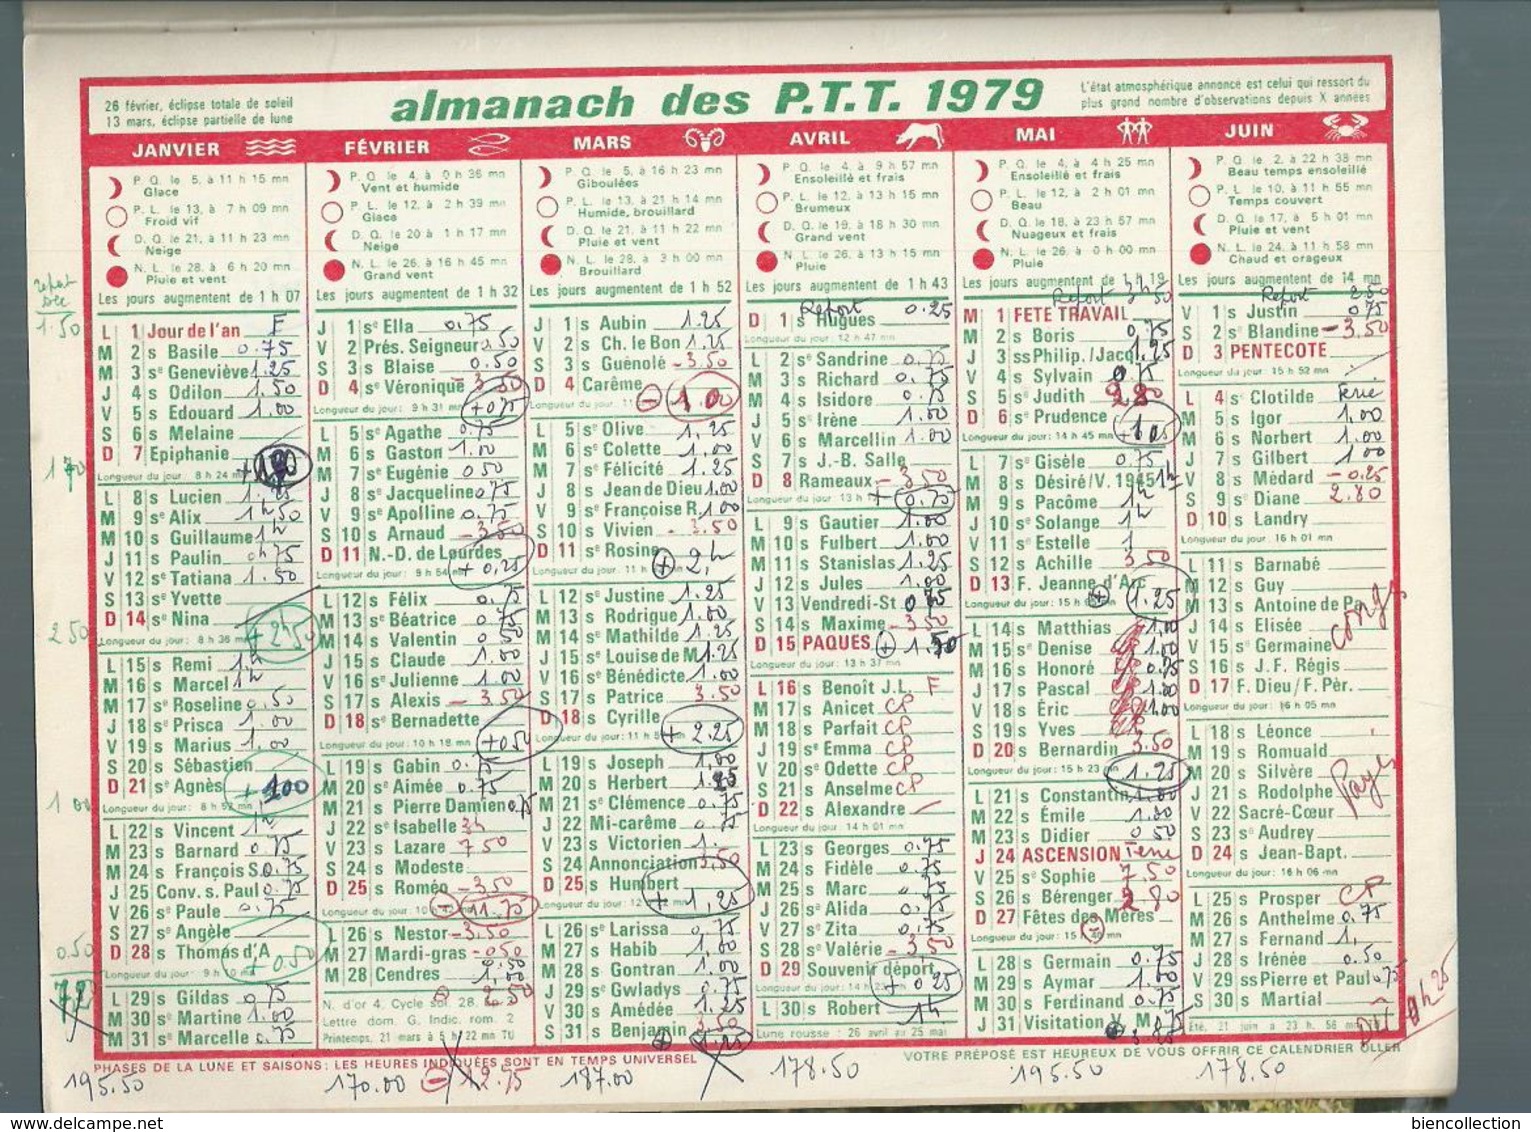 26 février, éclipse totale de soleil
13 mars, éclipse partielle de lune
almanach des P.T.T. 1979
L'état atmosphérique annoncé est celui qui ressort du
plus grand nombre d'observations depuis X années
JANVIER
P. Q. le 5, à 11 h 15 mn
Glace
P. L. le 13, à 7 h 09 mn
Froid vif
D. Q. le 21, à 11 h 23 mn
Neige
N. L. le 28, à 6 h 20 mn
Pluie et vent
Les jours augmentent de 1 h 07
1.50
L 1 Jour de l'an F
M 2 s Basile 0.75
M 3 se Geneviève 1.25
J 4 s Odilon 1.50
V 5 s Edouard 1.00
S 6 s Melaine
D 7 Epiphanie
Longueur du jour: 8 h 24 mn
L 8 s Lucien
M 9 se Alix 1h50
M 10 s Guillaume 1h
J 11 s Paulin 0h75
V 12 se Tatiana 1.50
S 13 se Yvette
D 14 se Nina
2 50
+ 2h50
Longueur du jour: 8 h 36 mn
L 15 s Remi 1h
M 16 s Marcel 1h
M 17 se Roseline 0.50
J 18 se Prisca 1.00
V 19 s Marius 1.00
S 20 s Sébastien
D 21 se Agnès + 1.00
1 00
L 22 s Vincent 1h
M 23 s Barnard 0.75
M 24 s François S. 0.75
J 25 Conv. s. Paul 0.75
V 26 se Paule 0.75
S 27 se Angèle
D 28 s Thomas d'A
0.50
+ 0.50
Longueur du jour: 9 h 10 mn
L 29 s Gildas 0.75
M 30 se Martine 1.00
M 31 se Marcelle 0.75
FÉVRIER
P. Q. le 4, à 0 h 36 mn
Vent et humide
P. L. le 12, à 2 h 39 mn
Glace
D. Q. le 20 à 1 h 17 mn
Neige
N. L. le 26, à 16 h 45 mn
Grand vent
Les jours augmentent de 1 h 32
J 1 se Ella 0.75
V 2 Prés. Seigneur 0.50
S 3 s Blaise 0.50
D 4 se Véronique - 3.50
Longueur du jour: 9 h 31 mn
+0.75
L 5 se Agathe 0.75
M 6 s Gaston 1.00
M 7 se Eugénie 0 50
J 8 se Jacqueline 0.75
V 9 se Apolline 0.75
S 10 s Arnaud - 3.50
D 11 N.-D. de Lourdes
Longueur du jour: 9 h 54 mn
+ 0,25
L 12 s Félix 0.75
M 13 se Béatrice 0.75
M 14 s Valentin 0 50
J 15 s Claude 1.00
V 16 se Julienne 1.00
S 17 s Alexis - 3.50
D 18 se Bernadette
Longueur du jour: 10 h 18 mn
+0.50
L 19 s Gabin 0.75
M 20 se Aimée 0.75
M 21 s Pierre Damien 0.75
J 22 se Isabelle 3h
V 23 s Lazare 7 50
S 24 s Modeste
D 25 s Roméo - 3.50
- 11.75
L 26 s Nestor - 3.50
M 27 Mardi-gras - 0 50
M 28 Cendres 1,00
N. d'or 4. Cycle sol. 28.
Lettre dom. G. Indic. rom. 2
Printemps, 21 mars à 5 h 22 mn TU
MARS
P. Q. le 5, à 16 h 23 mn
Giboulées
P. L. le 13, à 21 h 14 mn
Humide, brouillard
D. Q. le 21, à 11 h 22 mn
Pluie et vent
N. L. le 28. à 3 h 00 mn
Brouillard
Les jours augmentent de 1 h 52
J 1 s Aubin 1.25
V 2 s Ch. le Bon 1.25
S 3 s Guénolé - 3.50
D 4 Carême
- 1.00
L 5 se Olive 1.25
M 6 se Colette 1.00
M 7 se Félicité 1.25
J 8 s Jean de Dieu 1.00
V 9 se Françoise R. 1.00
S 10 s Vivien - 3.50
D 11 se Rosine
+ 2h
L 12 se Justine 1.25
M 13 s Rodrigue 1.00
M 14 se Mathilde 1.25
J 15 se Louise de M. 1.25
V 16 se Bénédicte 1.00
S 17 s Patrice 3.50
D 18 s Cyrille
+ 2.25
L 19 s Joseph 1,00
M 20 s Herbert
M 21 se Clémence 0.75
J 22 Mi-carême 0.75
V 23 s Victorien 1.
S 24 Annonciation 3.50
D 25 s Humbert
+ 1,25
L 26 se Larissa 0,75
M 27 s Habib 1,00
M 28 s Gontran 1.00
J 29 se Gwladys 0,75
V 30 s Amédée 1.25
S 31 s Benjamin 3.50
AVRIL
P. Q. le 4, à 9 h 57 mn
Ensoleillé et frais
P. L. le 12, à 13 h 15 mn
Brumeux
D. Q. le 19, à 18 h 30 mn
Grand vent
N. L. le 26, à 13 h 15 mn
Pluie
Les jours augmentent de 1 h 43
Report 0.25
D 1 s Hugues
Longueur du jour: 12 h 47 mn
L 2 se Sandrine 0.75
M 3 s Richard 0.75
M 4 s Isidore 0.75
J 5 se Irène 1.00
V 6 s Marcellin 1.00
S 7 s J.-B. Salle
D 8 Rameaux - 3.50
+ 0.75
L 9 s Gautier 1.00
M 10 s Fulbert 1.00
M 11 s Stanislas 1.25
J 12 s Jules 1.00
V 13 Vendredi-St 0.75
S 14 s Maxime - 3.50
D 15 PAQUES + 1.50
Longueur du jour: 13 h 37 mn
L 16 s Benoît J.L. F
M 17 s Anicet CP
M 18 s Parfait CP
J 19 se Emma CP
V 20 se Odette CP
S 21 s Anselme CP
D 22 s Alexandre
Longueur du jour: 14 h 01 mn
L 23 s Georges 0.75
M 24 s Fidèle 0.75
M 25 s Marc 0.75
J 26 se Alida 0.75
V 27 se Zita 0,75
S 28 se Valérie - 3.50
D 29 Souvenir déport.
+ 0.25
L 30 s Robert 1h
Lune rousse: 26 avril au 25 mai
MAI
P. Q. le 4, à 4 h 25 mn
Ensoleillé et frais
P. L. le 12, à 2 h 01 mn
Beau
D. Q. le 18, à 23 h 57 mn
Nuageux et frais
N. L. le 26, à 0 h 00 mn
Pluie
Les jours augmentent de 1 h 19
Report
M 1 FETE TRAVAIL
M 2 s Boris 0,75
J 3 ss Philip./Jacq. 1,25
V 4 s Sylvain 0.75
S 5 se Judith
D 6 se Prudence
Longueur du jour: 14 h 45 mn
L 7 se Gisèle 0.75
M 8 s Désiré/V. 1945 1h
M 9 s Pacôme 1h
J 10 se Solange 1h
V 11 se Estelle 1
S 12 s Achille 3.50
D 13 F. Jeanne d'Arc
+ 1.25
L 14 s Matthias 1,00
M 15 se Denise 1.00
M 16 s Honoré 0.75
J 17 s Pascal 1.00
V 18 s Éric 1.00
S 19 s Yves
D 20 s Bernardin 3.50
Longueur du jour: 15 h 23 mn
1.25
L 21 s Constantin 1.00
M 22 s Émile 1.00
M 23 s Didier 0 50
J 24 ASCENSION Férié
V 25 se Sophie 7.50
S 26 s Bérenger 2 80
D 27 Fêtes des Mères
L 28 s Germain 0.75
M 29 s Aymar 1.00
M 30 s Ferdinand 0.75
J 31 Visitation V. M.
JUIN
P. Q. le 2, à 22 h 38 mn
Beau temps ensoleillé
P. L. le 10, à 11 h 55 mn
Temps couvert
D. Q. le 17, à 5 h 01 mn
Pluie et vent
N. L. le 24, à 11 h 58 mn
Chaud et orageux
Les jours augmentent de 14 mn
Report
V 1 s Justin 0 75
S 2 se Blandine - 3.50
D 3 PENTECOTE
Longueur du jour: 15 h 52 mn
L 4 se Clotilde Férié
M 5 s Igor 1.00
M 6 s Norbert 1.00
J 7 s Gilbert 1 00
V 8 s Médard - 0.25
S 9 se Diane 2.80
D 10 s Landry
Longueur du jour: 16 h 01 mn
L 11 s Barnabé
M 12 s Guy
M 13 s Antoine de P.
J 14 s Elisée
V 15 se Germaine
S 16 s J. F. Régis
D 17 F. Dieu/F. Pèr.
Congs
Longueur du jour: 16 h 05 mn
L 18 s Léonce
M 19 s Romuald
M 20 s Silvère
J 21 s Rodolphe
V 22 Sacré-Cœur
S 23 se Audrey
D 24 s Jean-Bapt.
Payes
Longueur du jour: 16 h 06 mn
L 25 s Prosper CP
M 26 s Anthelme 0.75
M 27 s Fernand 1,
J 28 s Irénée 0.50
V 29 ss Pierre et Paul 0,75
S 30 s Martial
Été, 21 juin à 23 h. 56 mn
PHASES DE LA LUNE ET SAISONS: LES HEURES INDIQUÉES SONT EN TEMPS UNIVERSEL
VOTRE PRÉPOSÉ EST HEUREUX DE VOUS OFFRIR CE CALENDRIER OLLER
195.50 170.00 - 12.75 187.00 178.50 195.50 178.50
biencollection